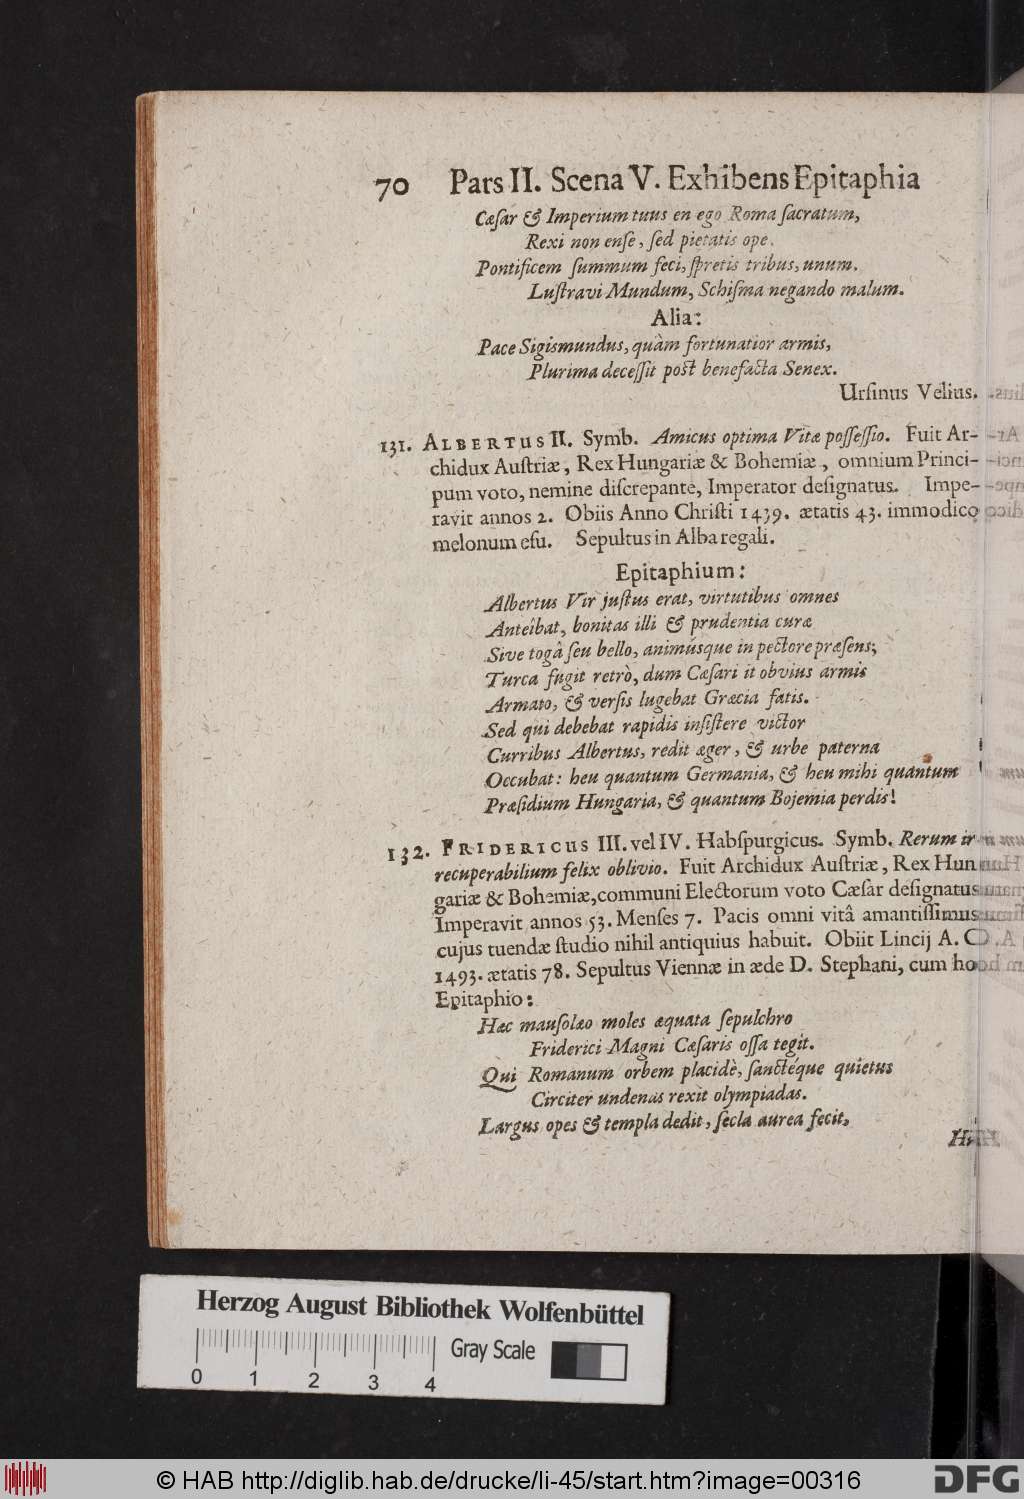 70 Pars II. Scena V. Exhibens Epitaphia
Cæſar & Imperium tuus en ego Roma ſacratum,
Rexi non enſe, ſed pietatis ope.
Pontificem ſummum feci, ſpretis tribus, unum.
Luſtravi Mundum, Schiſma negando malum.
Alia:
Pace Sigismundus, quàm fortunatior armis,
Plurima deceſſit poſt benefacta Senex.
Urſinus Velius.
131. ALBERTUS II. Symb. Amicus optima Vitæ poſſeſſio. Fuit Ar-
chidux Auſtriæ, Rex Hungariæ & Bohemiæ, omnium Princi-
pum voto, nemine diſcrepante, Imperator deſignatus. Impe-
ravit annos 2. Obiis Anno Chriſti 1439. ætatis 43. immodico
melonum eſu. Sepultus in Alba regali.
Epitaphium:
Albertus Vir juſtus erat, virtutibus omnes
Anteîbat, bonitas illi & prudentia curæ
Sive togâ ſeu bello, animúsque in pectore præſens;
Turca fugit retrò, dum Cæſari it obvius armis
Armato, & verſis lugebat Græcia fatis.
Sed qui debebat rapidis inſiſtere victor
Curribus Albertus, redit æger, & urbe paterna
Occubat: heu quantum Germania, & heu mihi quantum
Præſidium Hungaria, & quantum Bojemia perdis!
132. FRIDERICUS III. vel IV. Habſpurgicus. Symb. Rerum ir
recuperabilium felix oblivio. Fuit Archidux Auſtriæ, Rex Hun
gariæ & Bohemiæ, communi Electorum voto Cæſar deſignatus
Imperavit annos 53. Menſes 7. Pacis omni vitâ amantiſſimus
cujus tuendæ ſtudio nihil antiquius habuit. Obiit Lincij A. C
1493. ætatis 78. Sepultus Viennæ in æde D. Stephani, cum ho
Epitaphio:
Hæc mauſolæo moles æquata ſepulchro
Friderici Magni Cæſaris oſſa tegit.
Qui Romanum orbem placidè, ſanctéque quietus
Circiter undenas rexit olympiadas.
Largus opes & templa dedit, ſecla aurea fecit,
Herzog August Bibliothek Wolfenbüttel
Gray Scale
0 1 2 3 4
© HAB http://diglib.hab.de/drucke/li-45/start.htm?image=00316
DFG